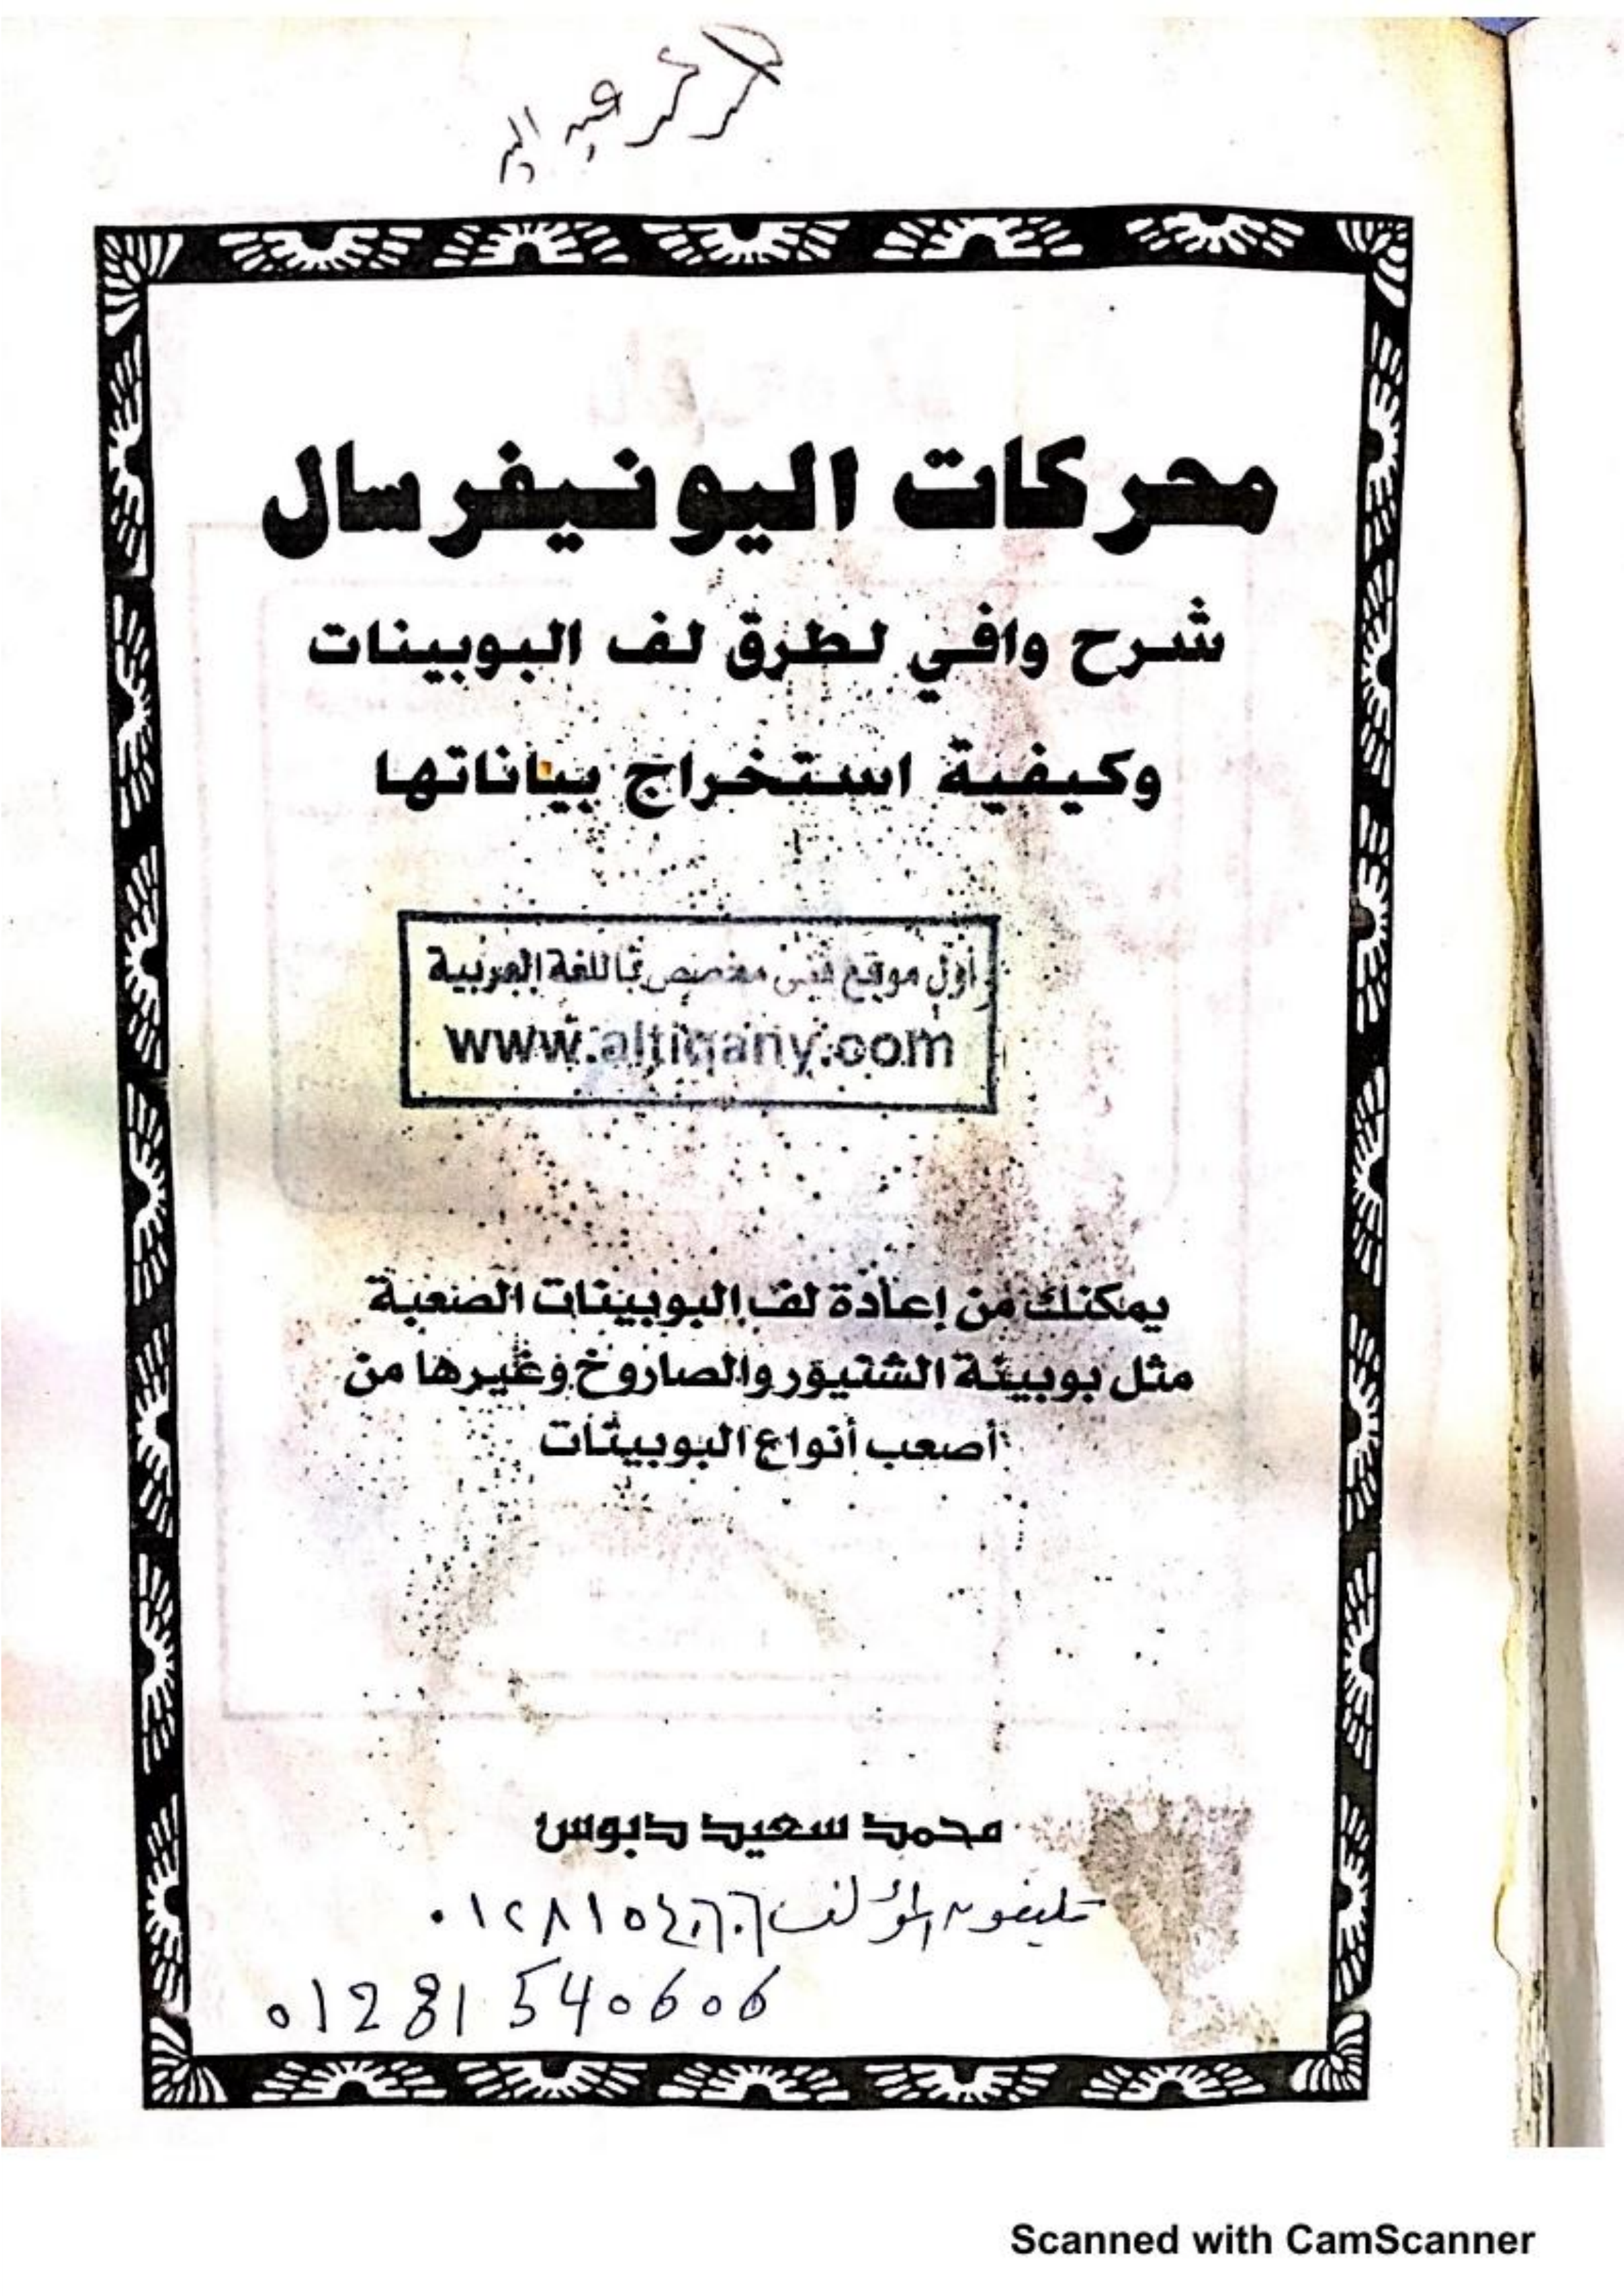 محركات اليونيفرسال
شرح وافي لطرق لف البوبينات
وكيفية استخراج بياناتها
أول موقع فنى متخصص باللغة العربية
www.altiqany.com
يمكنك من إعادة لف البوبينات الصعبة
مثل بوبينة الشنيور والصاروخ وغيرها من
أصعب أنواع البوبينات
محمد سعيد دبوس
تليفون المؤلف ٠١٢٨١٥٤٠٦٠٦
01281540606
Scanned with CamScanner